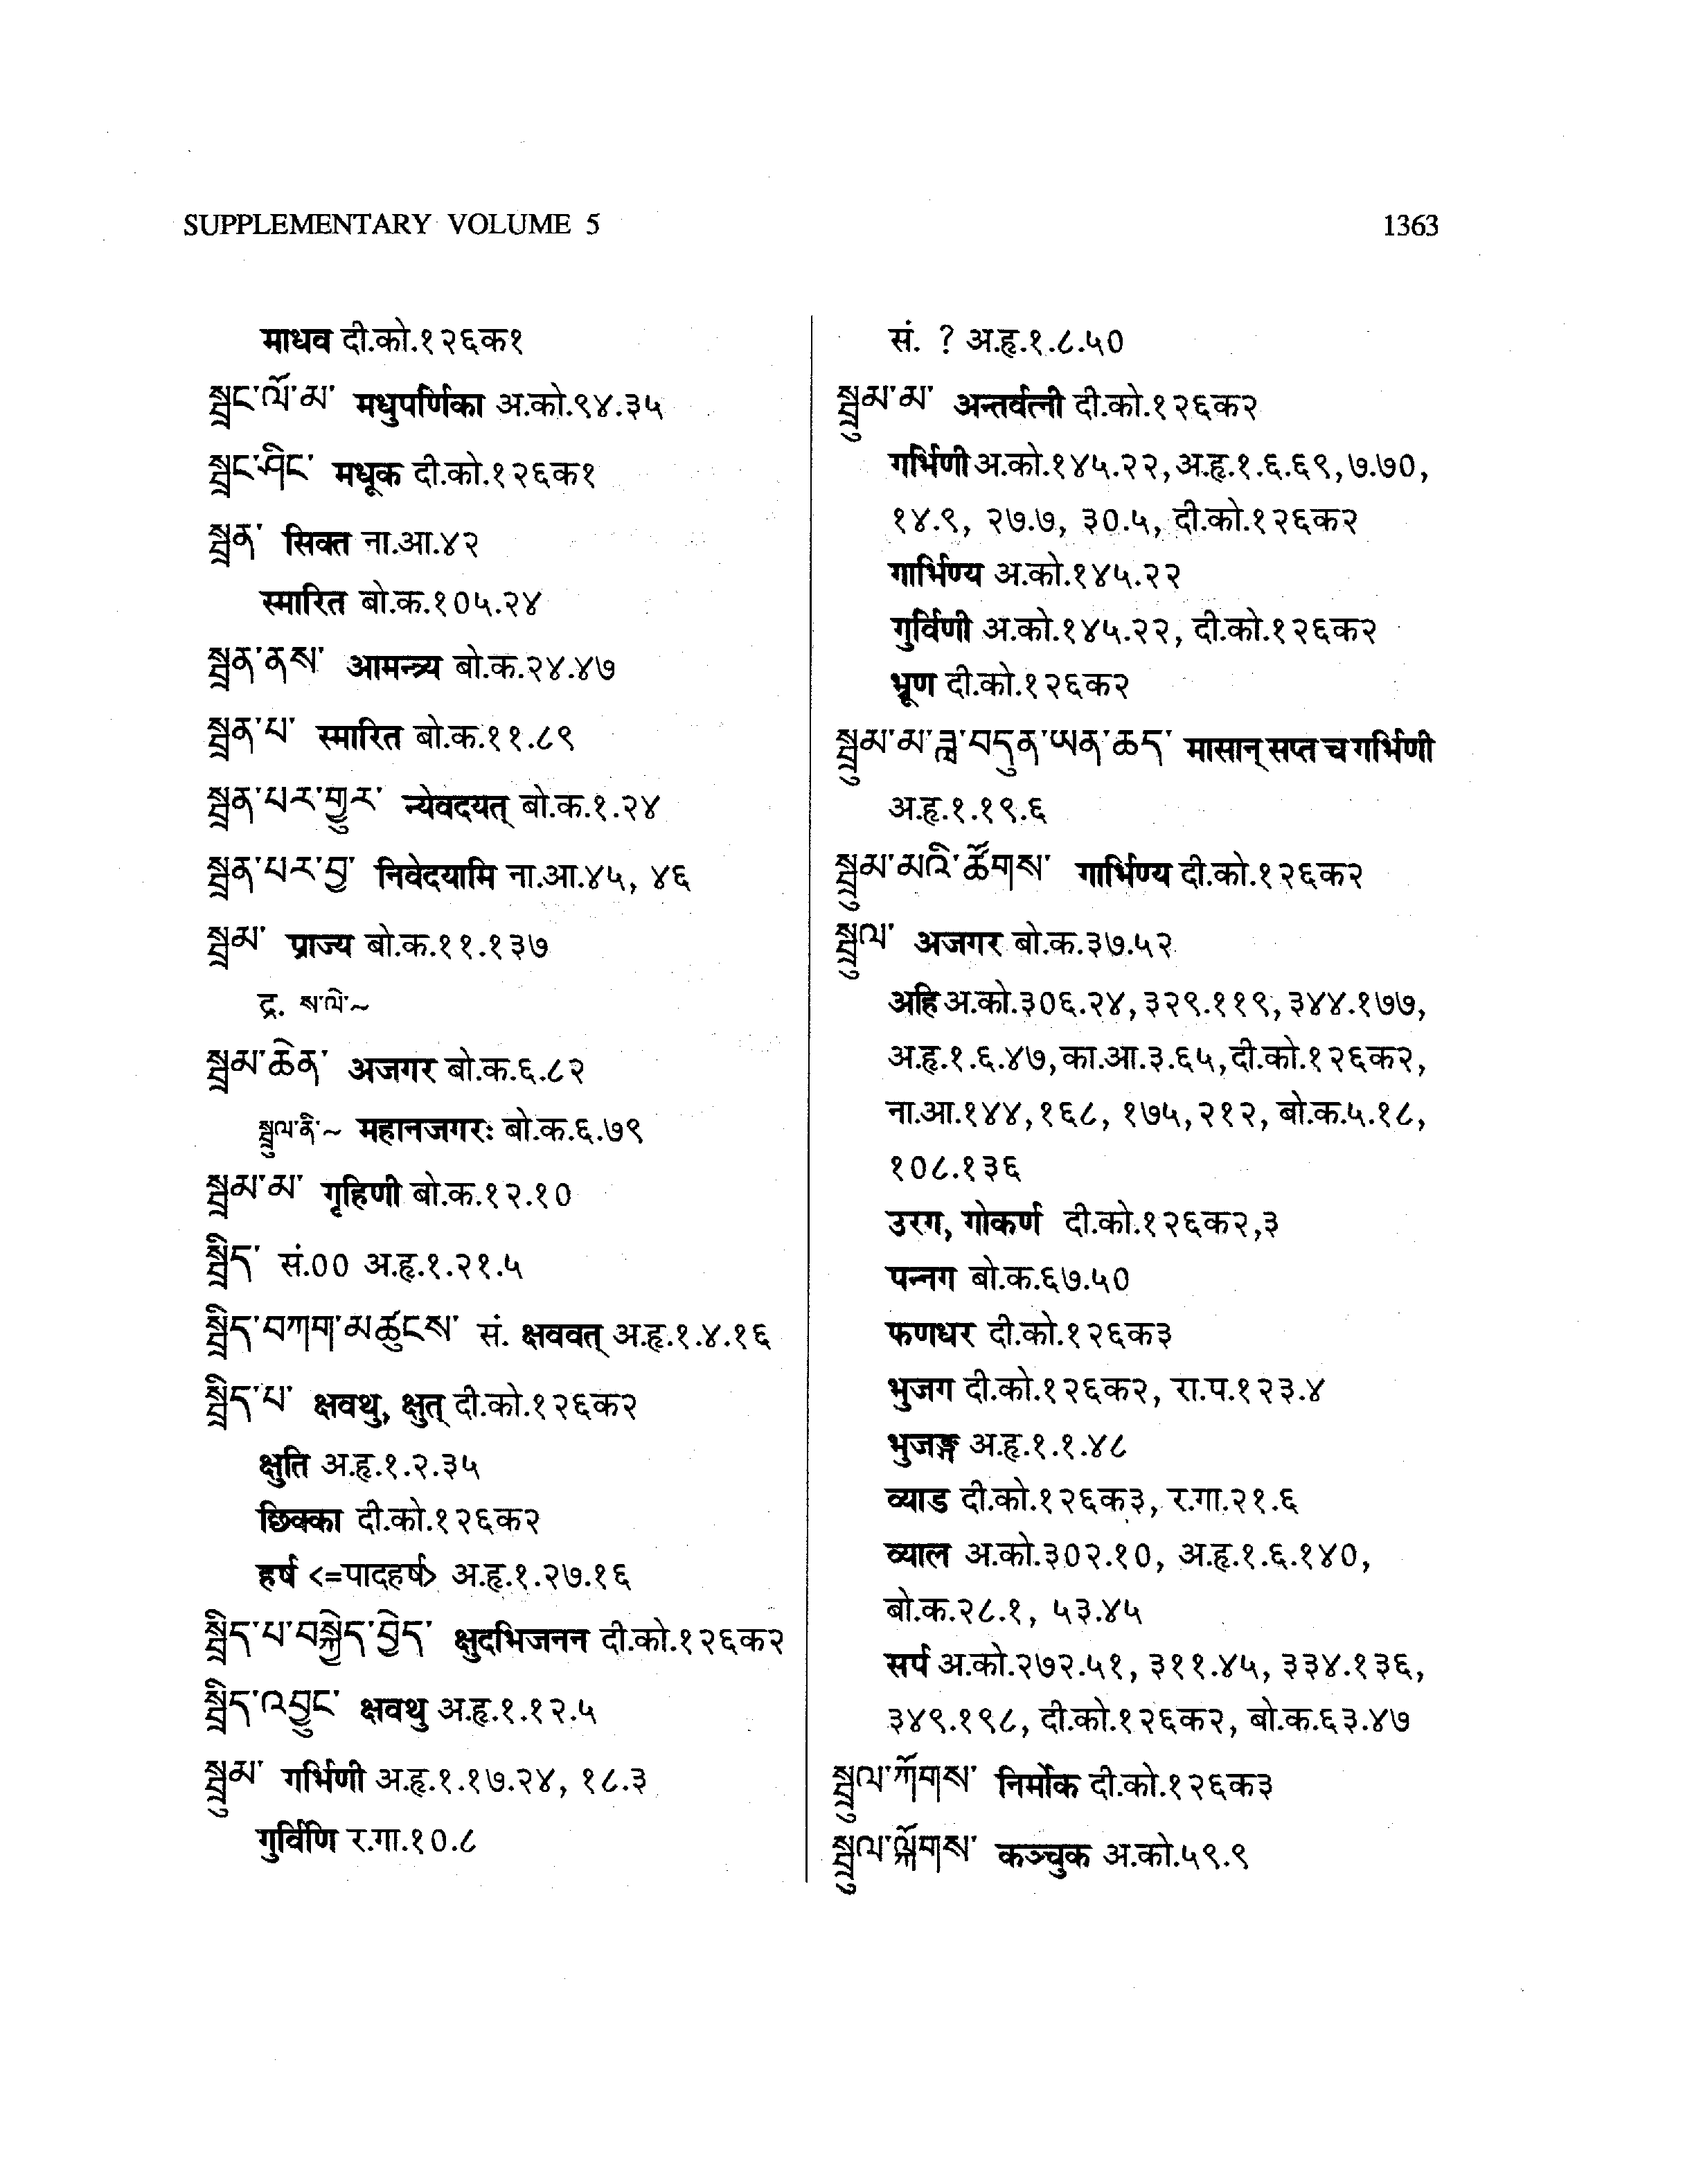 SUPPLEMENTARY VOLUME 5 1363
माधव दी.को.१२६क१
སྦྲང་ལོ་མ་ मधुपर्णिका अ.को.९४.३५
སྦྲང་ཤིང་ मधूक दी.को.१२६क१
སྦྲན་ सिक्त ना.आ.४२
स्मारित बो.क.१०५.२४
སྦྲན་ནས་ आमन्त्र्य बो.क.२४.४७
སྦྲན་པ་ स्मारित बो.क.११.८९
སྦྲན་པར་གྱུར་ न्येवदयत् बो.क.१.२४
སྦྲན་པར་བྱ་ निवेदयामि ना.आ.४५, ४६
སྦྲམ་ प्राज्य बो.क.११.१३७
द्र. ས་ལེ་~
སྦྲམ་ཆེན་ अजगर बो.क.६.८२
སྦྲུལ་ནི་~ महानजगरः बो.क.६.७९
སྦྲམ་མ་ गृहिणी बो.क.१२.१०
སྦྲིད་ सं.०० अ.हृ.१.२१.५
སྦྲིད་བཀག་མཚུངས་ सं. क्षववत् अ.हृ.१.४.१६
སྦྲིད་པ་ क्षवथु, क्षुत् दी.को.१२६क२
क्षुति अ.हृ.१.२.३५
छिक्का दी.को.१२६क२
हर्ष <=पादहर्ष> अ.हृ.१.२७.१६
སྦྲིད་པ་བསྐྱེད་བྱེད་ क्षुदभिजनन दी.को.१२६क२
སྦྲིད་འབྱུང་ क्षवथु अ.हृ.१.१२.५
སྦྲུམ་ गर्भिणी अ.हृ.१.१७.२४, १८.३
गुर्विणि र.गा.१०.८
सं. ? अ.हृ.१.८.५०
སྦྲུམ་མ་ अन्तर्वत्नी दी.को.१२६क२
गर्भिणी अ.को.१४५.२२, अ.हृ.१.६.६९, ७.७०,
१४.९, २७.७, ३०.५, दी.को.१२६क२
गार्भिण्य अ.को.१४५.२२
गुर्विणी अ.को.१४५.२२, दी.को.१२६क२
भ्रूण दी.को.१२६क२
སྦྲུམ་མ་ཟླ་བདུན་ཡན་ཆད་ मासान् सप्त च गर्भिणी
अ.हृ.१.१९.६
སྦྲུམ་མའི་ཚོགས་ गार्भिण्य दी.को.१२६क२
སྦྲུལ་ अजगर बो.क.३७.५२
अहि अ.को.३०६.२४, ३२९.११९, ३४४.१७७,
अ.हृ.१.६.४७, का.आ.३.६५, दी.को.१२६क२,
ना.आ.१४४, १६८, १७५, २१२, बो.क.५.१८,
१०८.१३६
उरग, गोकर्ण दी.को.१२६क२,३
पन्नग बो.क.६७.५०
फणधर दी.को.१२६क३
भुजग दी.को.१२६क२, रा.प.१२३.४
भुजङ्ग अ.हृ.१.१.४८
व्याड दी.को.१२६क३, र.गा.२१.६
व्याल अ.को.३०२.१०, अ.हृ.१.६.१४०,
बो.क.२८.१, ५३.४५
सर्प अ.को.२७२.५१, ३११.४५, ३३४.१३६,
३४९.१९८, दी.को.१२६क२, बो.क.६३.४७
སྦྲུལ་ཀོགས་ निर्मोक दी.को.१२६क३
སྦྲུལ་ལྐོགས་ कञ्चुक अ.को.५९.९